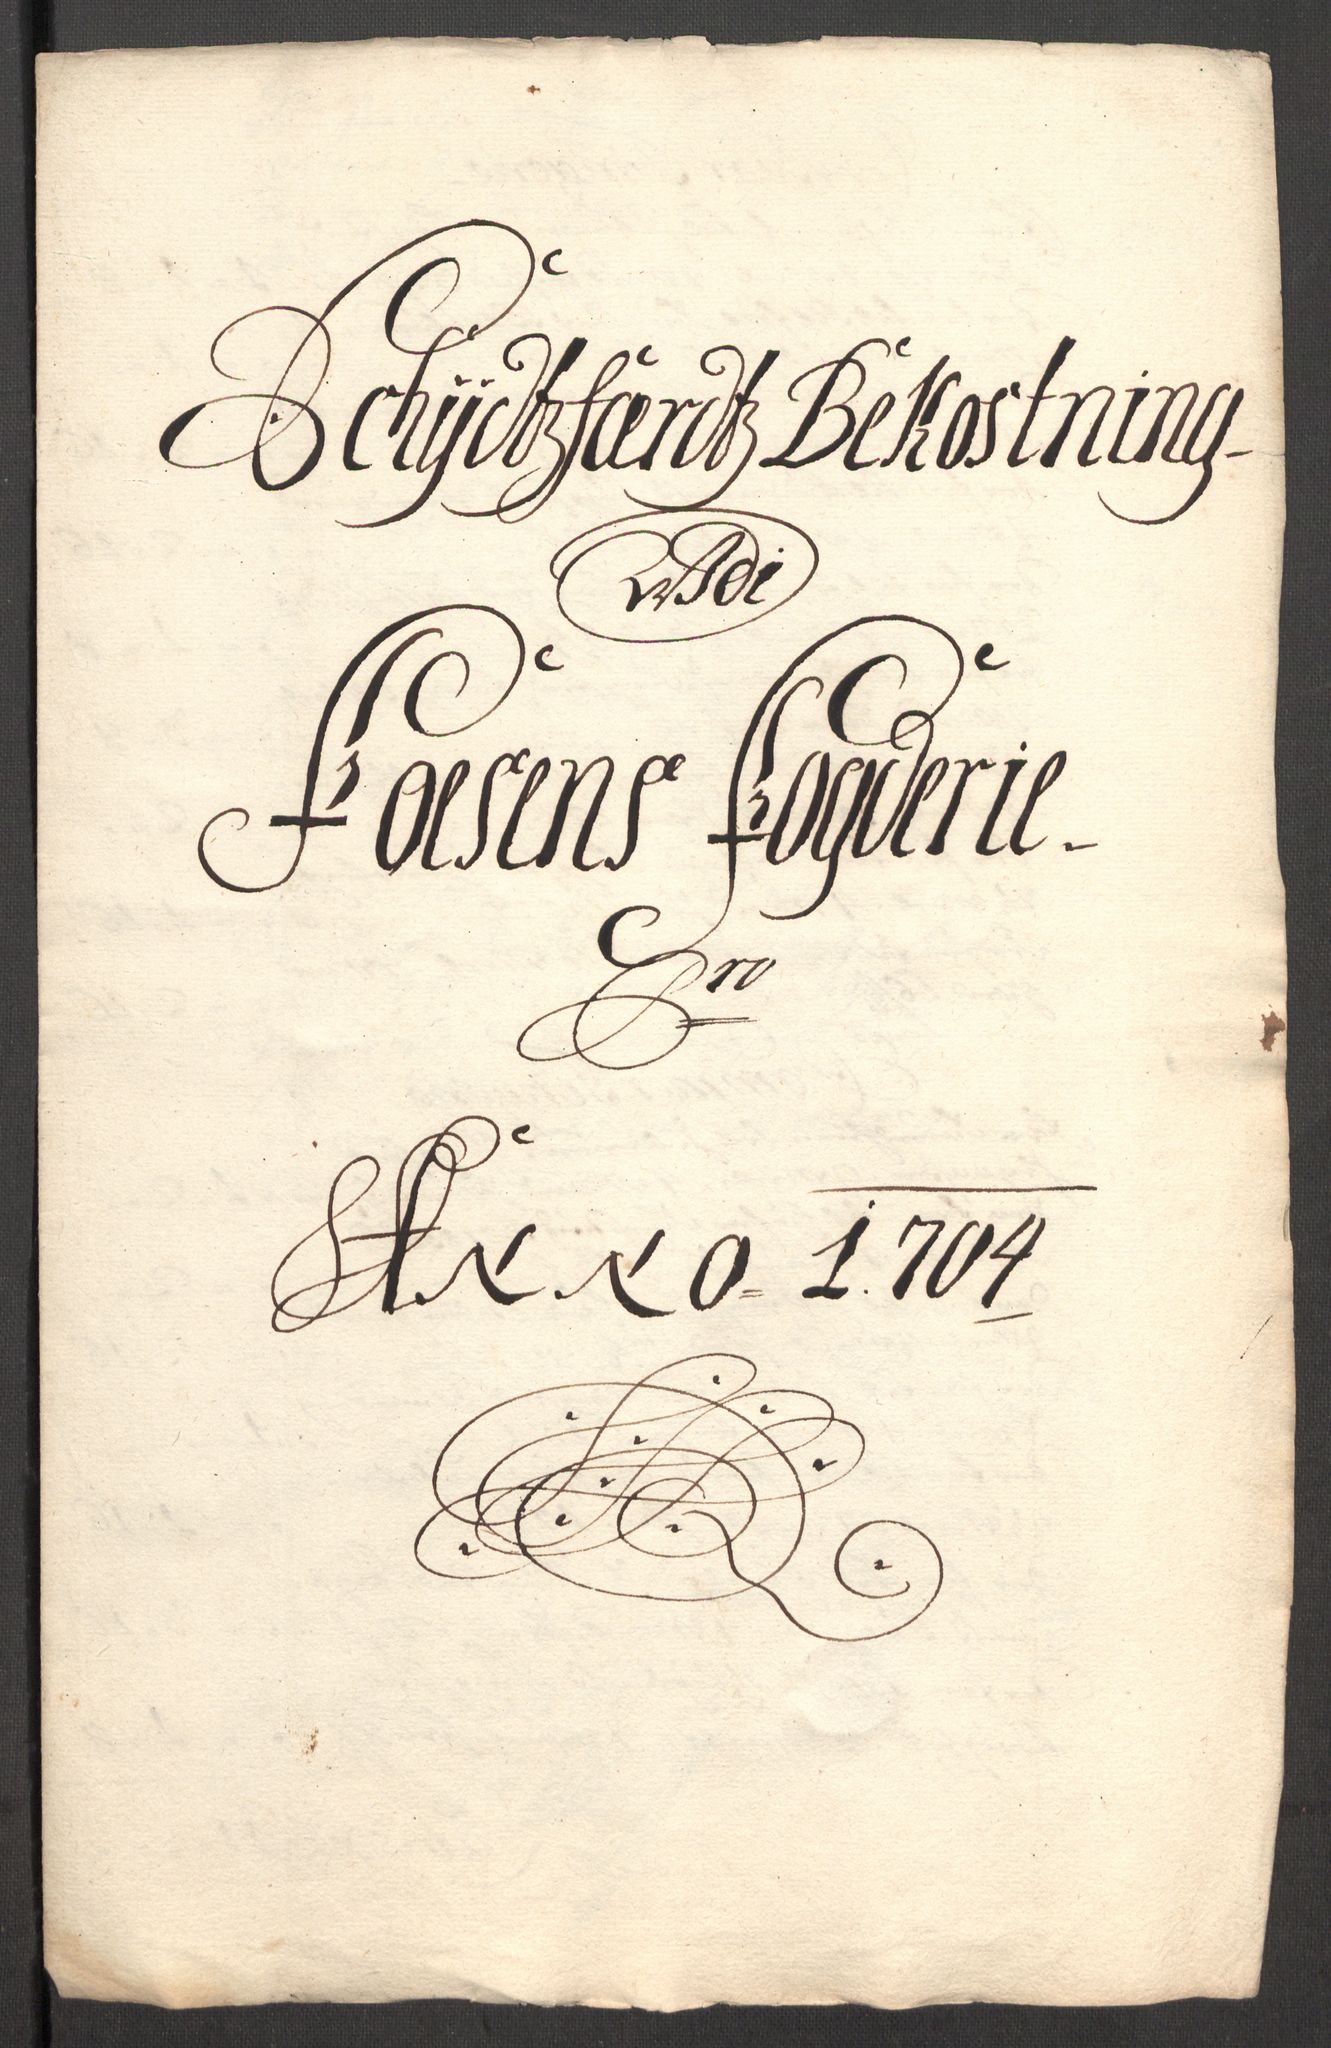 Schÿdtzfærdtz Bekostning
Udi
Foesens Fogderie
Pro
Anno 1704